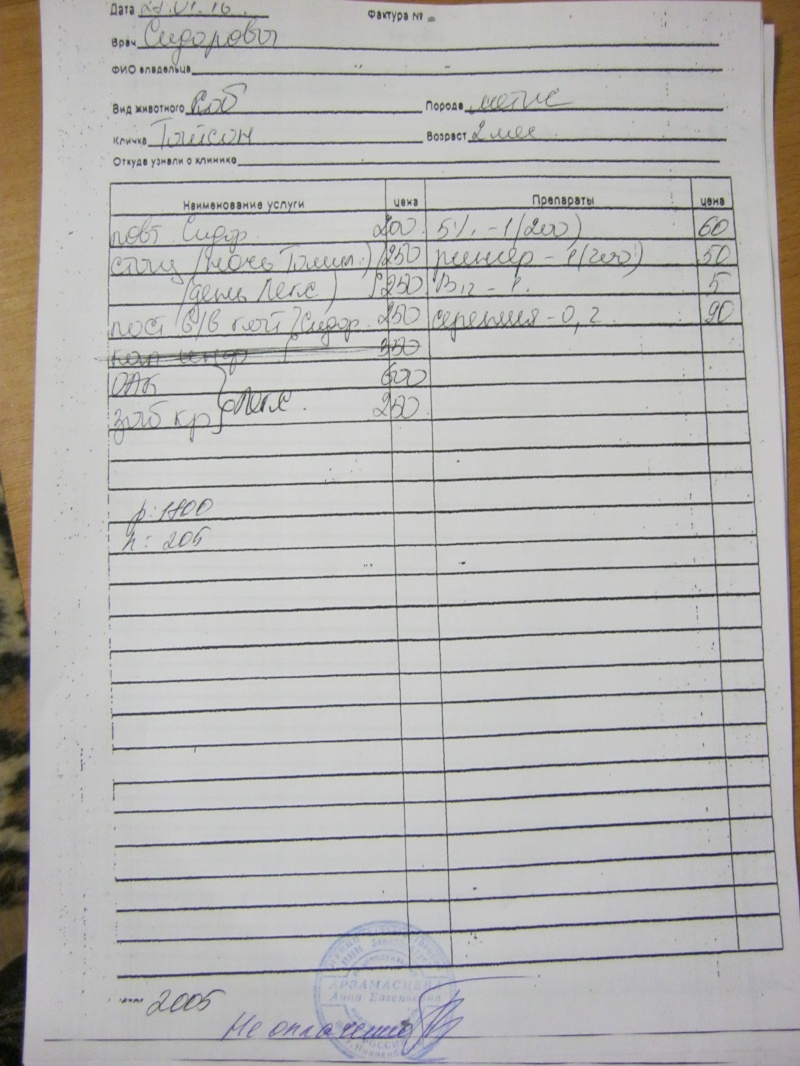 Дата 29.01.16 Фактура №
Врач Сидоровы
ФИО владельца
Вид животного Соб Порода метис
Кличка Тайсон Возраст 2 мес
Откуда узнали о клинике
Наименование услуги цена Препараты цена
повт Сидор. 200 5% - 1/200) 60
стац /ночь 250 - 1/200) 50
/день Лекс) 250 B12 - 1. 5
пост в/в кат /Сидор. 250 серения - 0,2 90
350
ОАК 600
заб кр } Лекс. 250
р: 1800
п: 205
2005
Не оплачено
АРЗАМАСЦЕВА
Анна Евгеньевна
РОССИЯ